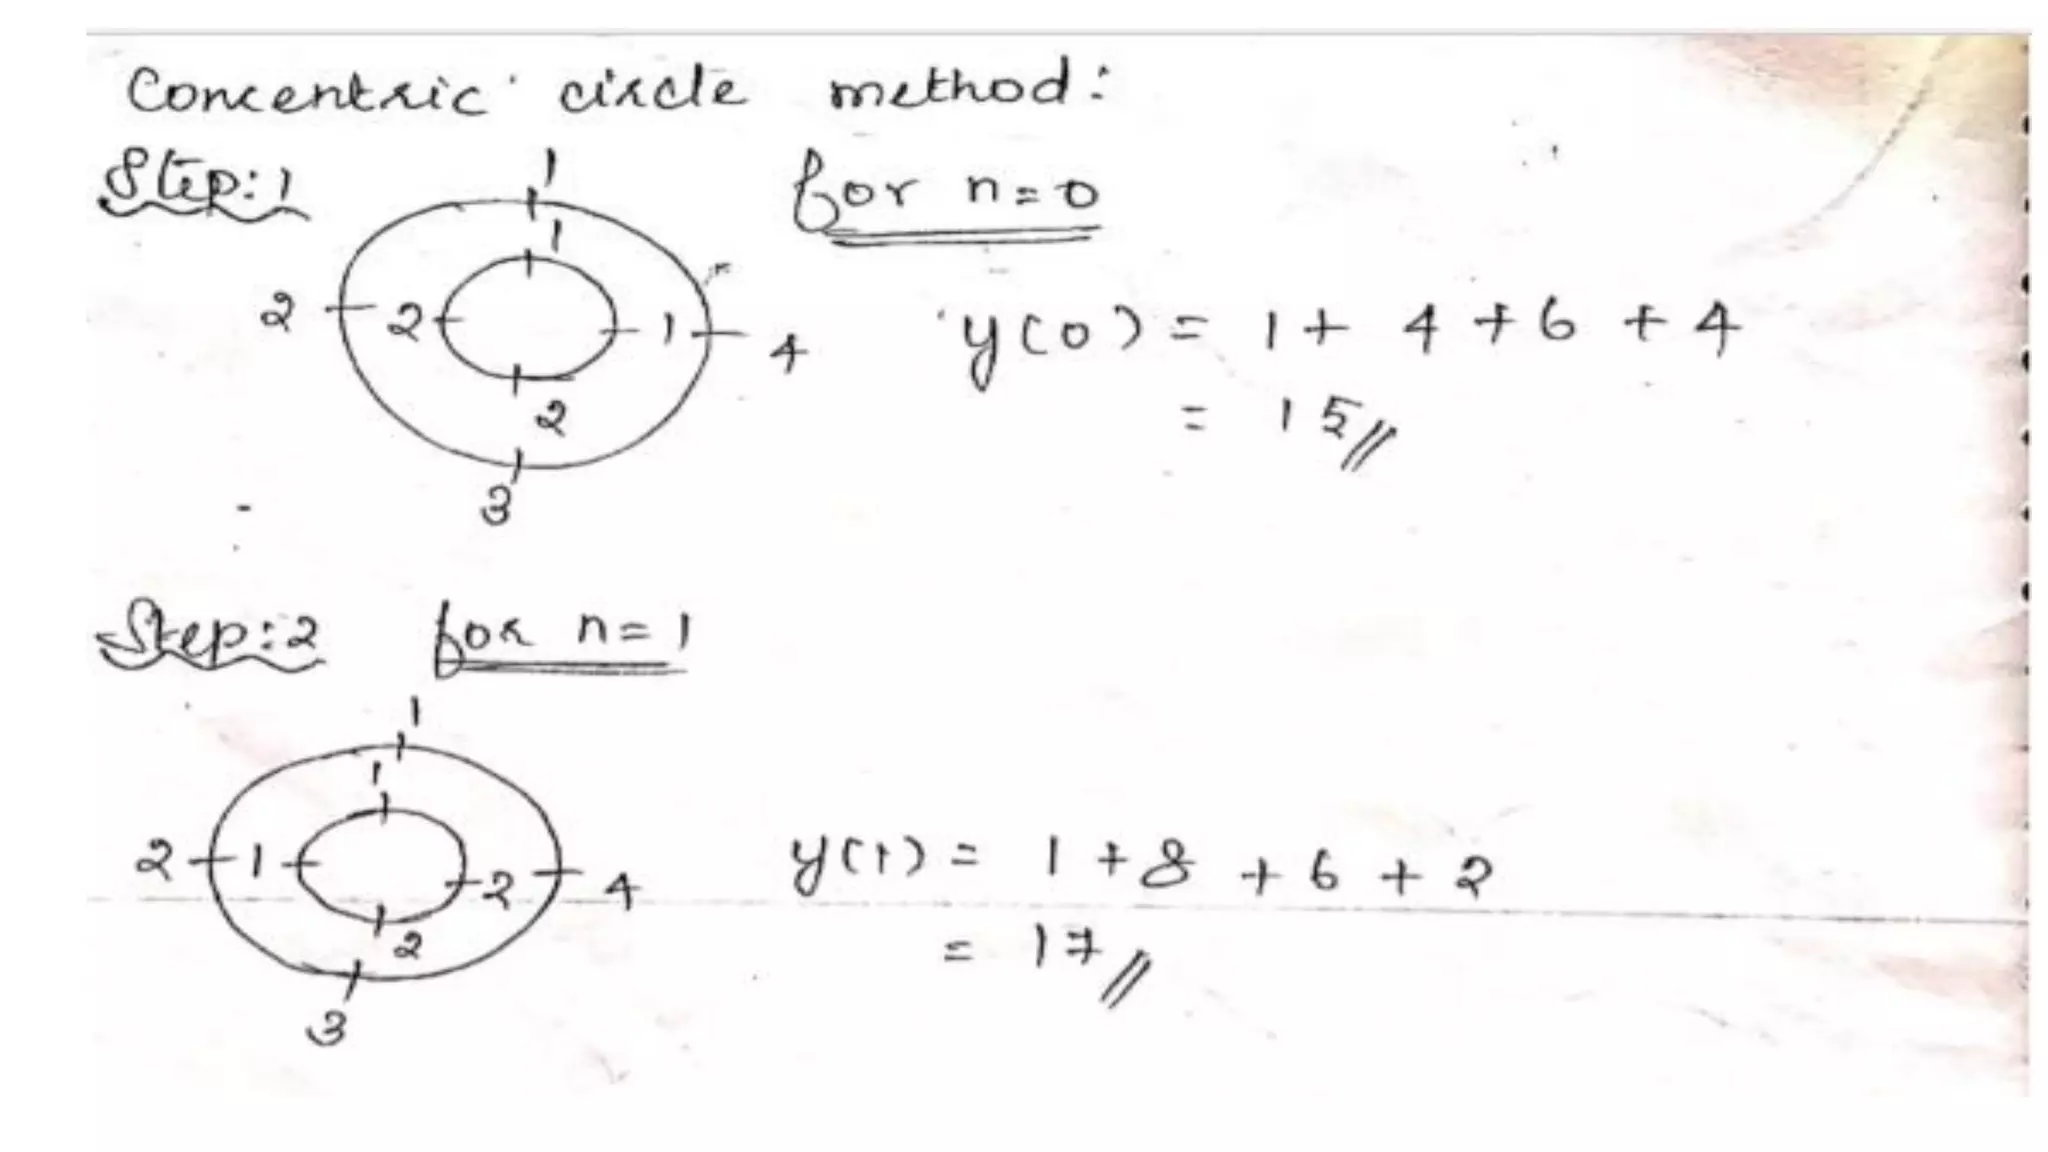 Concentric circle method:
Step:1
for n=0
1
1
2
2
1
4
2
3
y(0) = 1 + 4 + 6 + 4
= 15//
Step:2 for n=1
1
1
2
1
2
4
2
3
y(1) = 1 + 8 + 6 + 2
= 17//